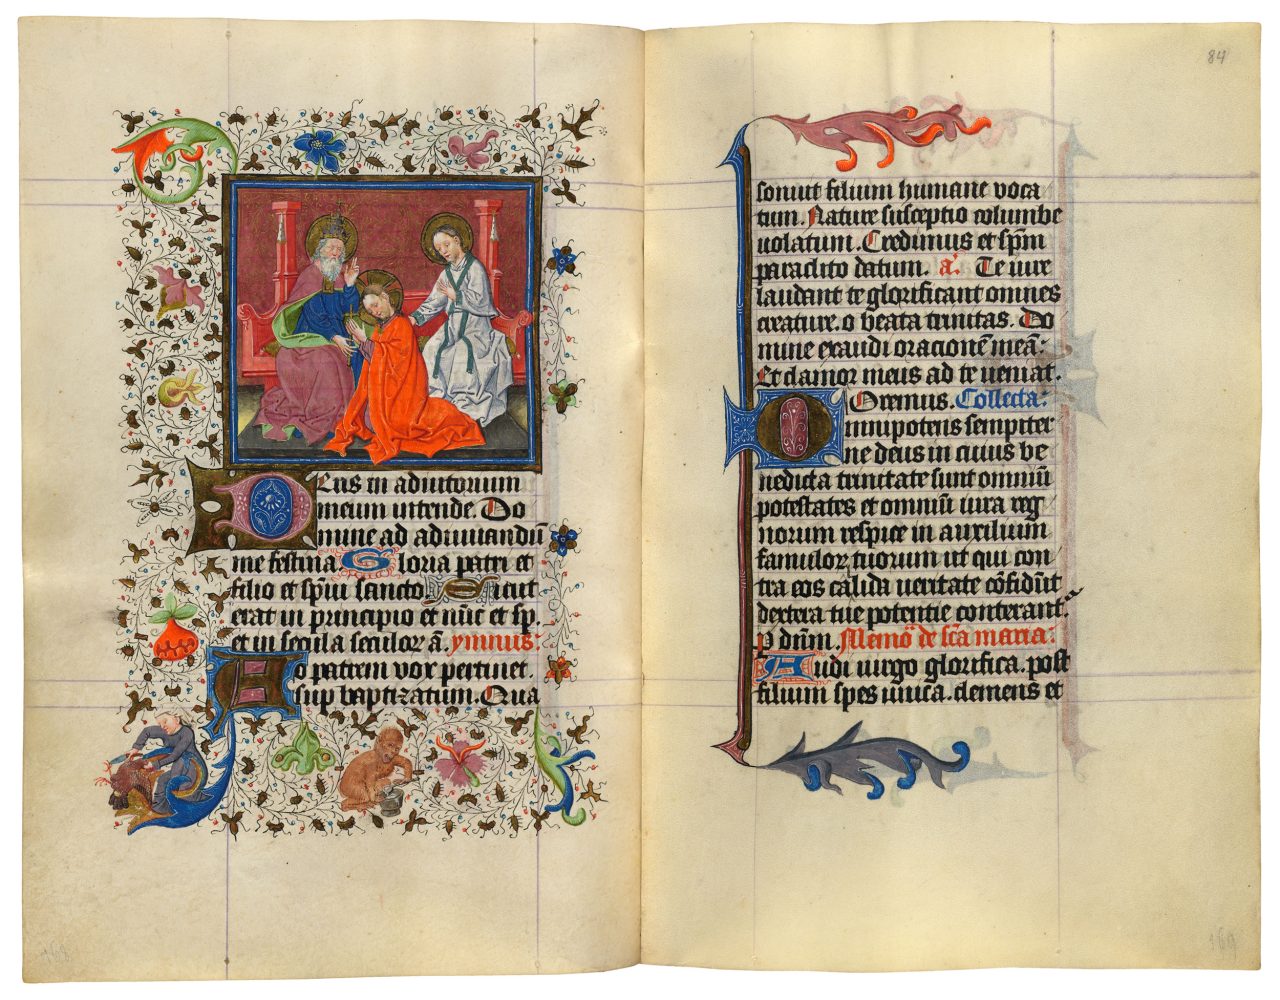 Deus in adiutorium
meum intende. Do
mine ad adiuuandū
me festina. Gloria patri et
filio et sp̄ui sancto. Sicut
erat in principio et nūc et sp̄.
et in secula seculoꝝ ā. ymnus:
Ao patrem vox pertinet.
sup baptizatum. Qua
84
sonuit filium humane voca
tum. Nature susceptio columbe
uolatum. Credimus et sp̄m
paraclito datum. a. Te iure
laudant te glorificant omnes
creature. o beata trinitas. Do
mine exaudi oracionē meā:
Et clamor meus ad te ueniat.
Oremus. Collecta:
Omnipotens sempiter
ne deus in cuius be
nedicta trinitate sunt omniū
potestates et omniū iura reg
norum respice in auxilium
famuloꝝ tuorum ut qui con
tra eos calida ueritate cōfidūt
dextera tue potentie conterant.
P dūm. Memoª de sc̄a maria:
Audi uirgo glorifica. post
filium spes unica. clemens et